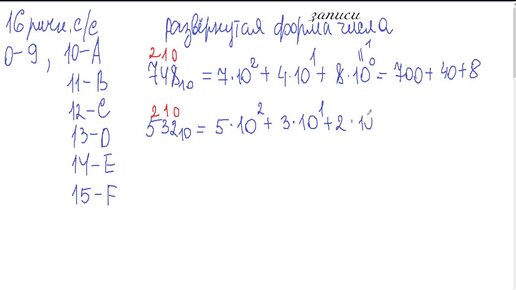 16 ричн. с/с
0-9, 10-A
11-B
12-C
13-D
14-E
15-F
развёрнутая форма записи числа
2 1 0
748₁₀ = 7·10² + 4·10¹ + 8·10⁰ = 700 + 40 + 8
1
2 1 0
532₁₀ = 5·10² + 3·10¹ + 2·10